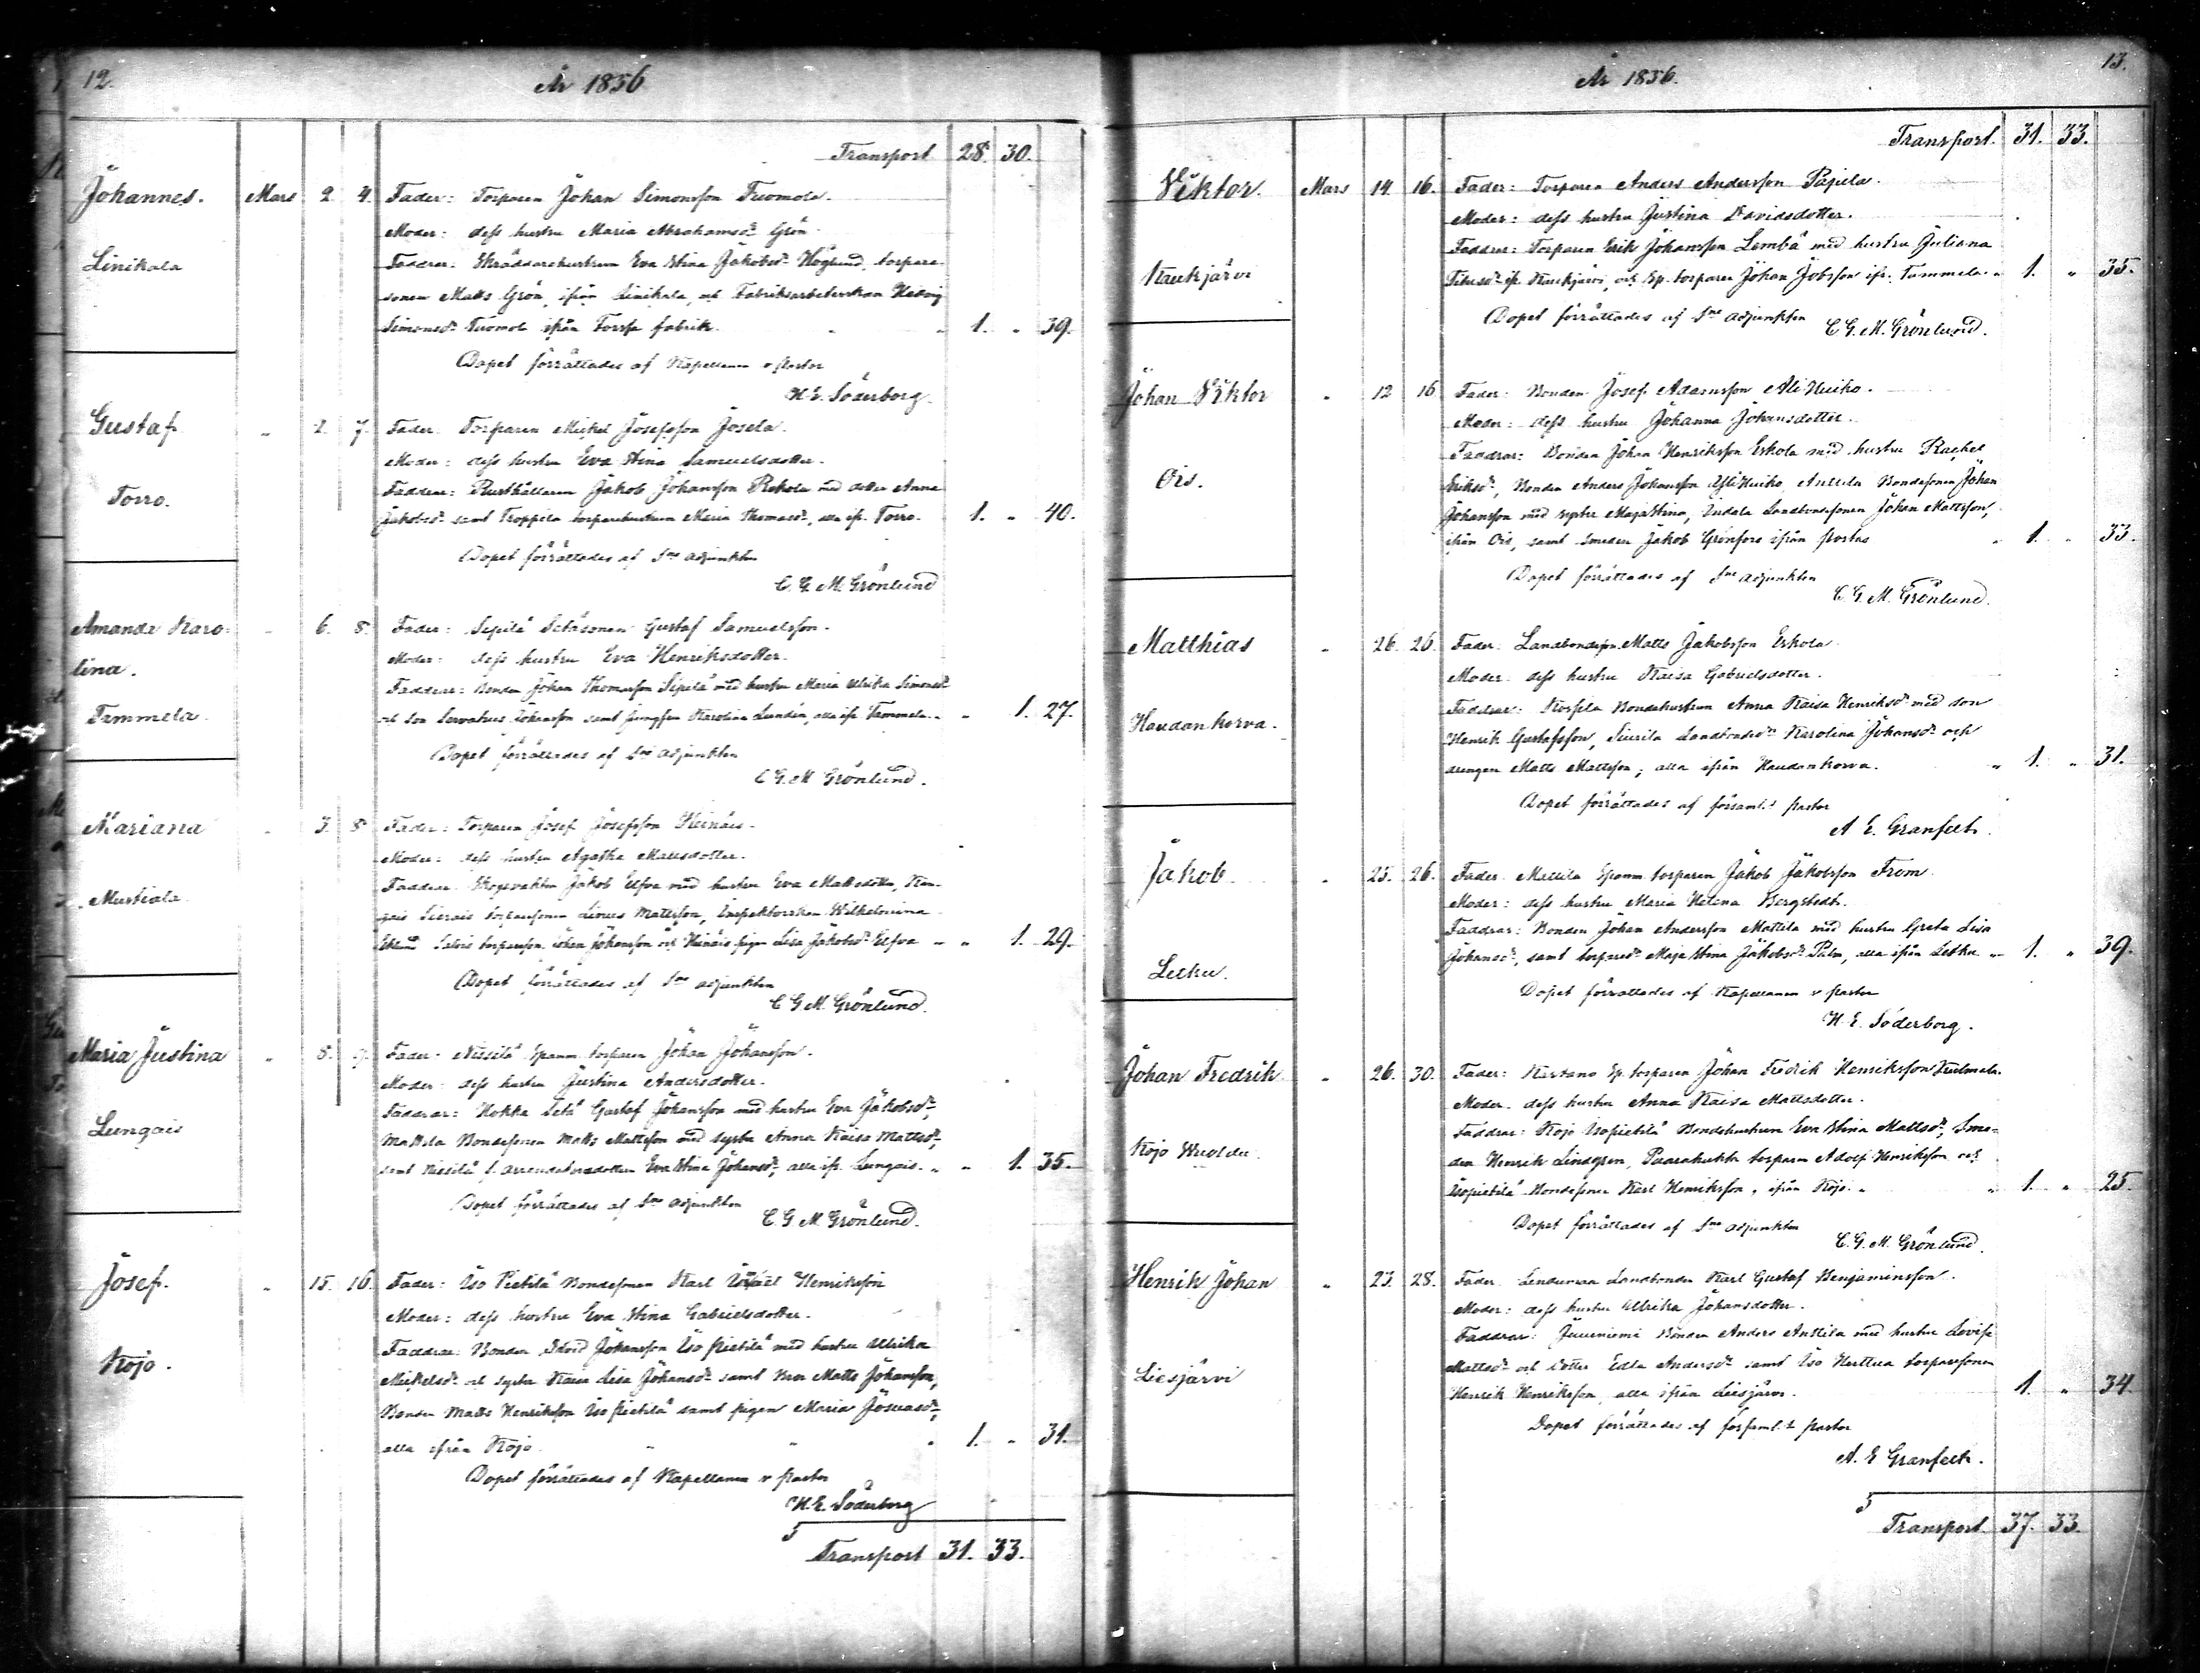 12.
År 1856
Transport 28. 30.
Johannes. Mars 2 4. Fader: Torparen Johan Simonsson Tuomola.
Moder: dess hustru Maria Abrahamsdr Grön.
Linikala
Faddrar: Skräddarehustrun Eva Stina Jakobsdr Höglund, torpare-
sonen Matts Grön, ifrån Linikala, och Fabriksarbeterskan Hedvig
Simonsdr Tuomola ifrån Forssa fabrik. 1. " 39.
Dopet förrättades af Kapellanen v. pastor
H. E. Söderborg.
Gustaf " 2. 7. Fader: Torparen Mickel Josefsson Josela.
Moder: dess hustru Eva Stina Samuelsdotter.
Torro.
Faddrar: Rusthållaren Jakob Johansson Rekola med dotter Anna
Jakobsdr samt Froppila torparehustrun Maria Thomasdr, alla ifr. Torro. 1. " 40.
Dopet förrättades af Sne adjunkten
C. G. M. Grönlund
Amanda Karo- " 6. 8. Fader: Sepilä Sytåsonen Gustaf Samuelsson.
lina.
Moder: dess hustru Eva Henriksdotter.
Tammela.
Faddrar: Bonden Johan Thomasson Sipilä med hustru Maria Ulrika Simonsdr
och son Servatius Johansson samt jungfrun Karolina Lundén, alla ifr. Tammela. " 1. 27.
Dopet förrättades af Sne adjunkten
C. G. M. Grönlund.
Mariana " 3. 8. Fader: Torparen Josef Josefsson Heinäis.
Moder: dess hustru Agatha Mattsdotter.
Mustiala
Faddrar: Skogsvakten Jakob Elfva med hustru Eva Mattsdotter,
torparesonen Linus Mattsson, Inspektorskan Wilhelmina
Eklund torpareson Johan Johansson och Heinäis pigan Lisa Jakobsdr Elfva " " 1. 29.
Dopet förrättades af Sne adjunkten
C. G. M. Grönlund.
Maria Justina " 8. 9. Fader: Nissilä Spanm. torparen Johan Johansson.
Moder: dess hustru Justina Andersdotter.
Lungais
Faddrar: Hokka Gustaf Johansson med hustru Eva Jakobsdr,
Mattila Bondesonen Matts Mattsson med syster Anna Kaisa Mattsdr,
samt Nissilä f. arrendatorsdottern Eva Stina Johansdr, alla ifr. Lungais. " " 1. 35.
Dopet förrättades af Sne adjunkten
C. G. M. Grönlund.
Josef. " 15. 16. Fader: Iso Pietilä Bondesonen Karl Israel Henriksson
Moder: dess hustru Eva Stina Gabrielsdotter.
Kojo.
Faddrar: Bonden David Johansson Iso Pietilä med hustru Ulrika
Mickelsdr och syster Kaisa Lisa Johansdr samt bror Matts Johansson,
Bonden Matts Henriksson Iso Pietilä samt pigan Maria Josuasdr,
alla ifrån Kojo. " " " 1. " 31.
Dopet förrättades af Kapellanen v. pastor
H. E. Söderborg
5
Transport 31. 33.
13.
År 1856.
Transport. 31. 33.
Viktor. Mars 14. 16. Fader: Torparen Anders Andersson Papila.
Moder: dess hustru Justina Davidsdotter.
Kaukjärvi
Faddrar: Torparen Erik Johansson Lembä med hustru Juliana
Titusdr ifr. Kaukjärvi, och Sp. torparen Johan Jobsson ifr. Tammela. " 1. " 35.
Dopet förrättades af Sne adjunkten
C. G. M. Grönlund.
Johan Viktor " 12 16 Fader: Bonden Josef Adamsson Ali Huiko.
Moder: dess hustru Johanna Johansdotter.
Faddrar: Bonden Johan Henriksson Eskola med hustru Rachel
Ois.
Eriksdr, Bonden Anders Johansson Yli Huiko, Anttila Bondesonen Johan
Johansson med syster Maja Stina, Uudala Landbondesonen Johan Mattsson,
ifrån Ois, samt Smeden Jakob Grönfors ifrån Portas " 1. " 33.
Dopet förrättades af Sne adjunkten
C. G. M. Grönlund.
Matthias " 26. 26. Fader: Landbondeson Matts Jakobsson Eskola.
Moder: dess hustru Kaisa Gabrielsdotter.
Haudankorva.
Faddrar: Korpila Bondehustrun Anna Kaisa Henriksdr med son
Henrik Gustafsson, Siurila Landbondedr Karolina Johansdr och
drengen Matts Mattsson; alla ifrån Haudankorva. " 1. " 31.
Dopet förrättades af församl:s pastor
A. E. Granfelt.
Jakob " 25. 26. Fader: Mattila Spanm. torparen Jakob Jakobsson From.
Moder: dess hustru Maria Helena Bergstedt.
Letku.
Faddrar: Bonden Johan Andersson Mattila med hustru Greta Lisa
Johansdr, samt torparedr Maja Stina Jakobsdr Palm, alla ifrån Letku " 1. " 39.
Dopet förrättades af Kapellanen v. pastor
H. E. Söderborg.
Johan Fredrik. " 26. 30. Fader: Kartano Sp. torparen Johan Fredrik Henriksson
Moder: dess hustru Anna Kaisa Mattsdotter.
Kojo
Faddrar: Kojo Isopietilä Bondehustrun Eva Stina Mattsdr, Sme-
den Henrik Lindgren, torparen Adolf Henriksson och
Isopietilä Bondesonen Karl Henriksson, ifrån Kojo. " " 1. " 25.
Dopet förrättades af Sne adjunkten
C. G. M. Grönlund.
Henrik Johan " 23. 28. Fader: Lindunmaa Landbonden Karl Gustaf Benjaminsson.
Moder: dess hustru Ulrika Johansdotter.
Liesjärvi
Faddrar: Juuniemi Bonden Anders Anttila med hustru Lovisa
Mattsdr och dotter Edla Andersdr samt Iso Herttua torparesonen
Henrik Henriksson, alla ifrån Liesjärvi. 1. " 34.
Dopet förrättades af församl:s pastor
A. E. Granfelt.
5
Transport. 37. 33.